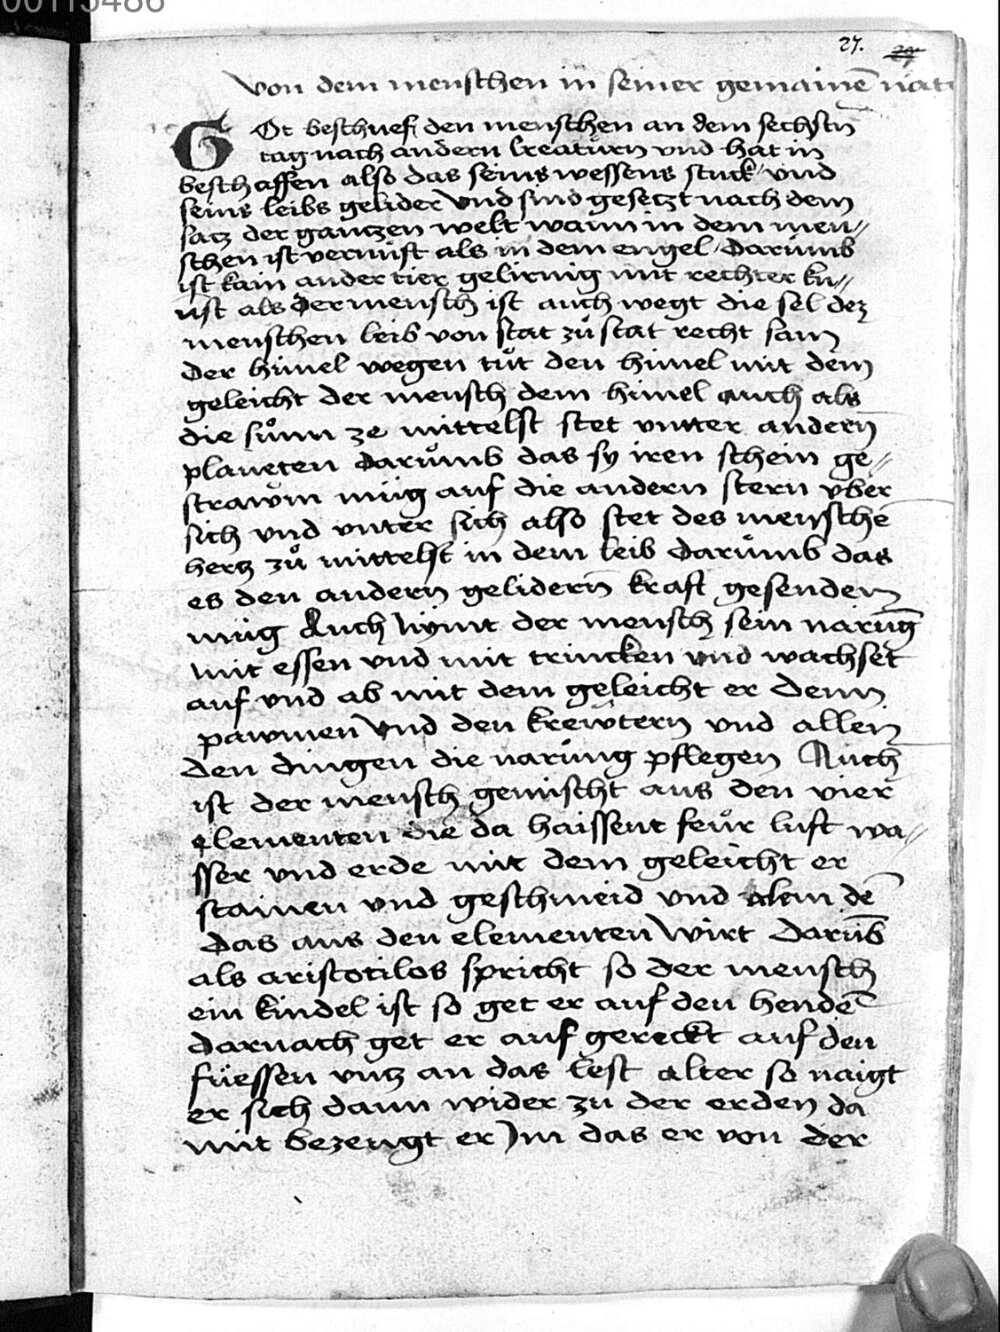 00115486
27.
von dem menschen in seiner gemainē nat
GOt beschuef den menschen an dem sechsten
tag nach andern creaturn vnd hat in
beschaffen also das seins wessens stuck vnd
seins leibs gelider vnd sind gesetzt nach dem
satz der gantzen welt wann in dem men〃
schen ist vernuft als in dem engel Darumb
ist kain ander tier gelirnig mit rechter ku〃
nst als der mensch ist auch wegt die sel dez
menschen leib von stat zů stat recht sam
der himel wegen tůt den himel mit dem
geleicht der mensch dem himel auch als
die sůnn ze mittelst stet vnter andern
planeten Darůmb das sy iren schein ge〃
strawm müg auf die andern stern vber
sich vnd vnter sich also stet des menschē
hertz zů mittelst in dem leib Darůmb das
es den andern gelidern kraft gesenden
müg Auch nÿmt der mensch sein narūg
mit essen vnd mit trincken vnd wachset
auf vnd ab mit dem geleicht er denn
pawmen vnd den krewtern vnd allen
den dingen die narůng pflegen Auch
ist der mensch gemischt aus den vier
elementen die da haissent feůr luft wa〃
sser vnd erde mit dem geleicht er
stainen vnd geschmeid vnd alem dē
Das aus den elementen wirt Darūb
als aristotilos spricht so der mensch
ein kindel ist so get er auf den hendē
Darnach get er auf gereckt auf den
füessen vntz an das lest alter so naigt
er sich dann wider zu der erden da
mit bezeugt er Im das er von der